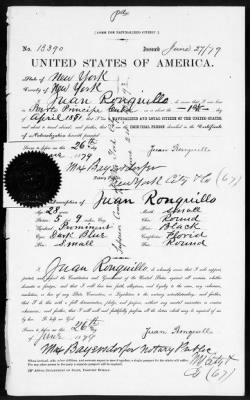 [FORM FOR NATURALIZED CITIZEN.]
No. 13390 Issued June 27/79
UNITED STATES OF AMERICA.
State of New York
County of New York
I, Juan Ronquillo, do swear that I was born
in Puerto Principe Cuba on the 1st day of
April 1851 that I am a NATURALIZED AND LOYAL CITIZEN OF THE UNITED STATES,
and about to travel abroad; and further, that I am the IDENTICAL PERSON described in the Certificate
of Naturalization herewith presented.
Sworn to before me this 26th day
of June 1879
Juan Ronquillo
Max Bayersdorfer
Notary Public
New York City & Co (67)
Description of Juan Ronquillo
Age: 28 Mouth: Small
Stature: 5 feet 9 inches, Eng. Chin: Round
Forehead: Prominent Hair: Black
Eyes: Dark Blue Complexion: Florid
Nose: Small Face: Round
I, Juan Ronquillo, do solemnly swear that I will support,
protect, and defend the Constitution and Government of the United States against all enemies, whether
domestic or foreign; and that I will bear true faith, allegiance, and loyalty to the same, any ordinance,
resolution, or law of any State, Convention, or Legislature to the contrary notwithstanding; and further,
that I do this with a full determination, pledge, and purpose, without any mental reservation or evasion
whatsoever; and further, that I will well and faithfully perform all the duties which may be required of me
by law: So help me God.
Sworn to before me this 26th day
of June 1879
Juan Ronquillo
Max Bayersdorfer Notary Public
(67)